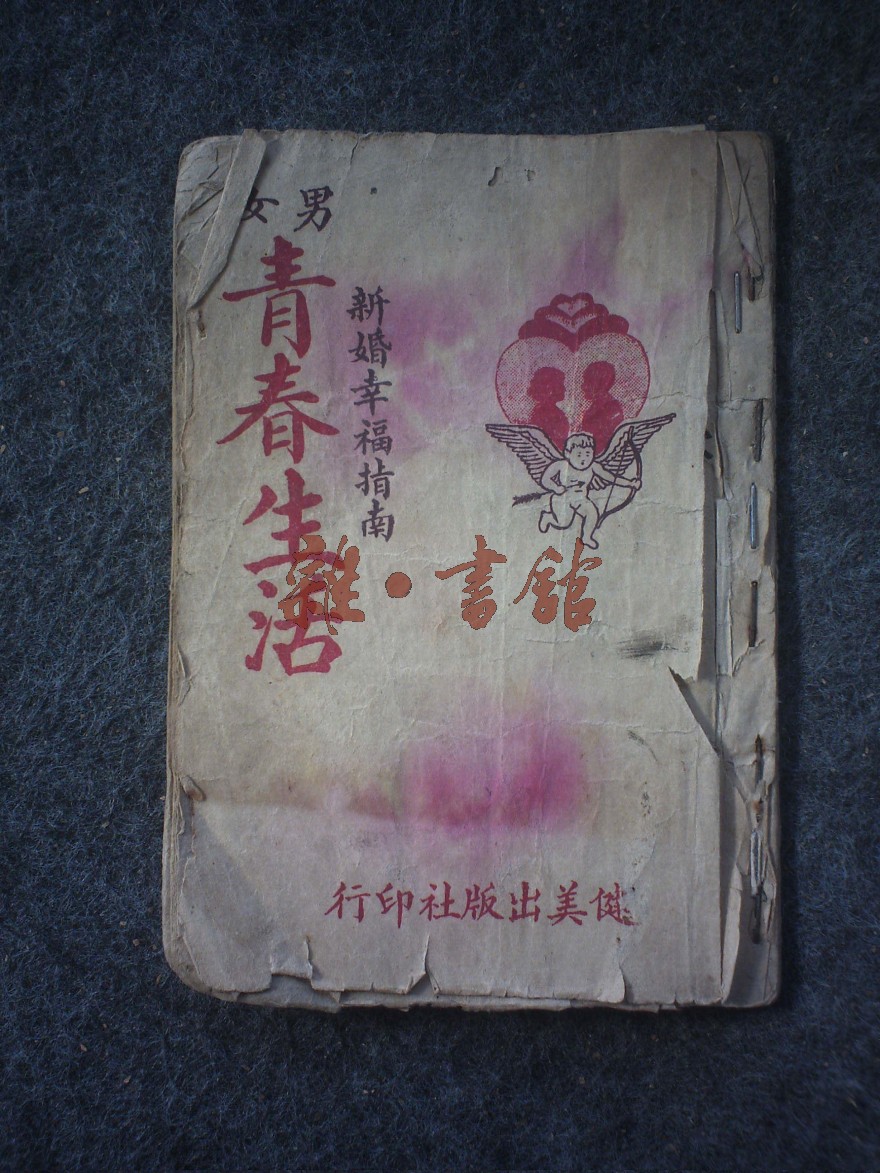 男女
青春生活
新婚幸福指南
雜·書館
健美出版社印行